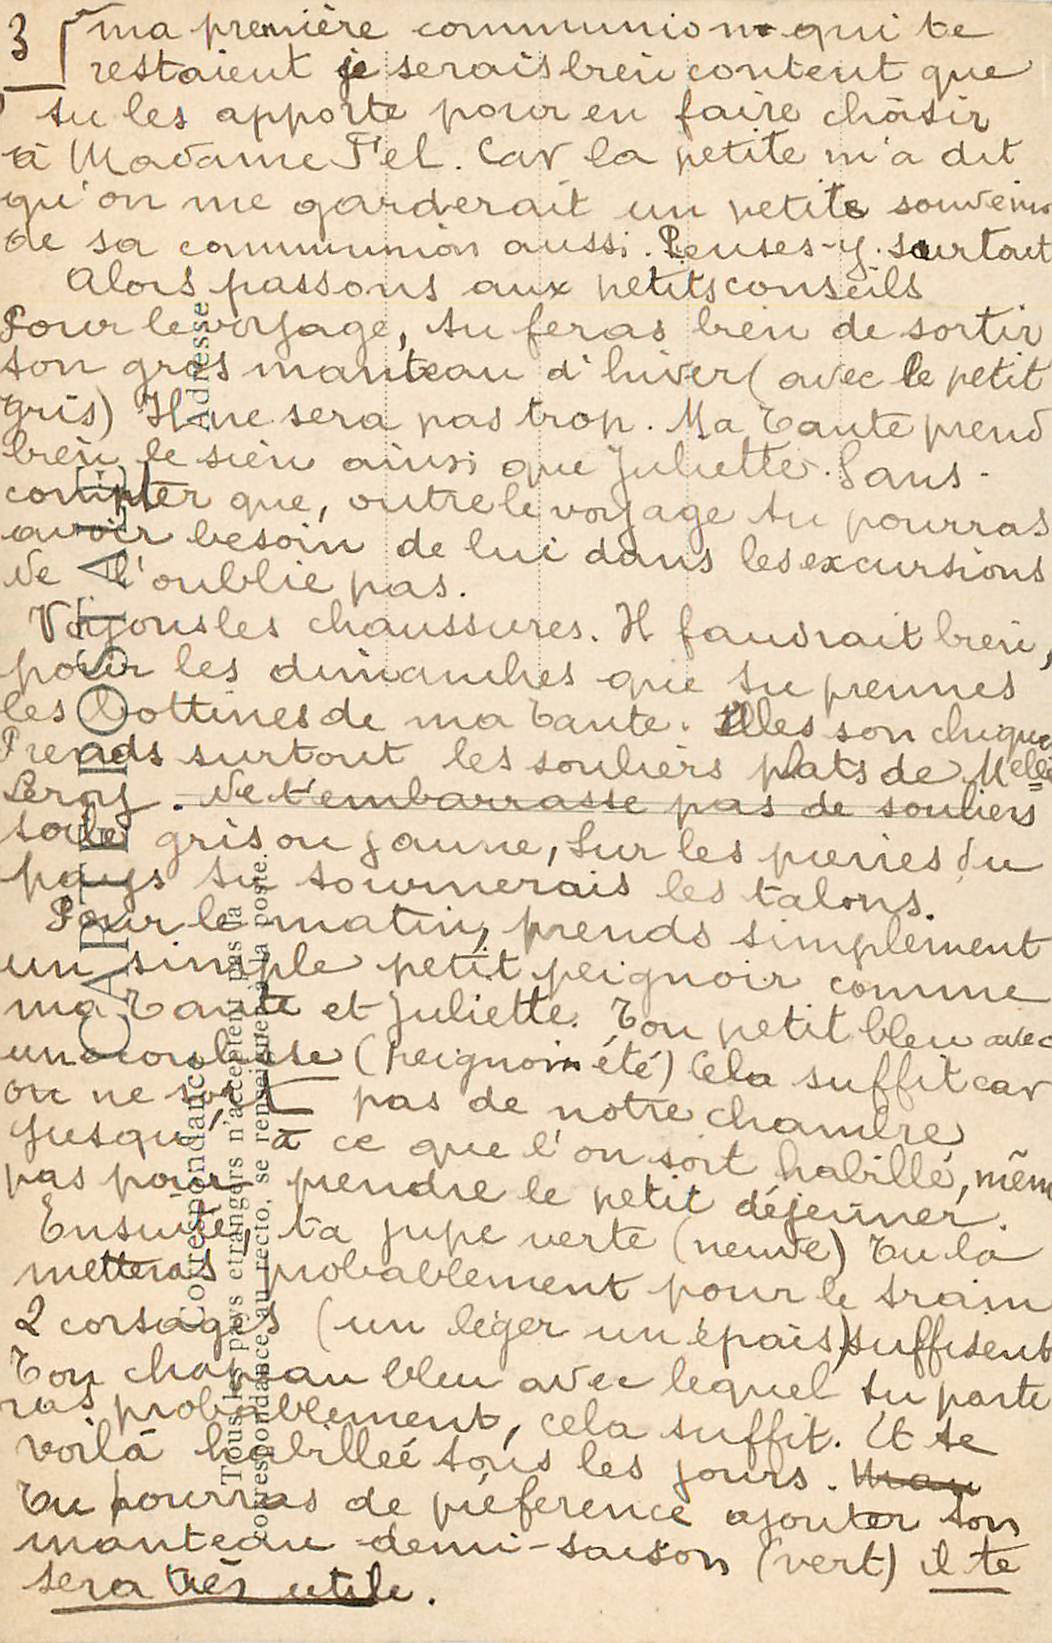 3 ma première communion qui te
restaient je serais bien content que
tu les apporte pour en faire choisir
à Madame Fel. Car la petite m'a dit
qu'on me garderait un petite souvenir
de sa communion aussi. Penses-y surtout
Alors passons aux petits conseils
Pour le voyage, tu feras bien de sortir
ton gros manteau d'hiver (avec le petit
gris) Il ne sera pas trop. Ma tante prend
bien le sien ainsi que Juliette. Sans
compter que, outre le voyage tu pourras
avoir besoin de lui dans les excursions
Ne l'oublie pas.
Voyons les chaussures. Il faudrait bien,
pour les dimanches que tu prennes
les bottines de ma tante. Elles son chiques
Prends surtout les souliers plats de Melle
Leroy. Ne t'embarrasse pas de souliers
toile gris ou jaune, sur les pierres du
pays tu tournerais les talons.
Pour le matin, prends simplement
un simple petit peignoir comme
ma tante et Juliette. Ton petit bleu avec
une coulisse (peignoir été) Cela suffit car
on ne sort pas de notre chambre
jusqu'à ce que l'on soit habillé, même
pas pour prendre le petit déjeuner.
Ensuite, ta jupe verte (neuve) tu la
metteras probablement pour le train
2 corsages (un léger un épais) suffisent
Ton chapeau bleu avec lequel tu parti
ras probablement, cela suffit. Et te
voilà habilleé tous les jours.
Tu pourras de préference ajouter ton
manteau demi-saison (vert) il te
sera très utile.
CARTE POSTALE
Correspondance
Adresse
Tous les pays étrangers n'acceptent pas la
correspondance au recto, se renseigner à la poste.